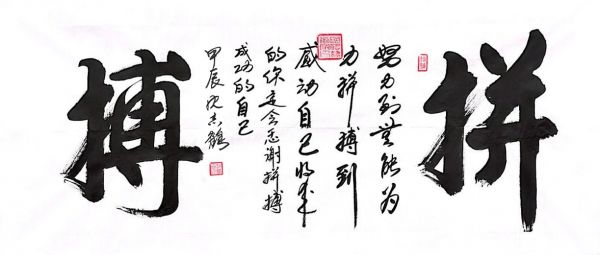 拼
努力到無能为
力拼搏到
感动自己将来
的你定会感谢拼搏
成功的自己
甲辰沈
搏